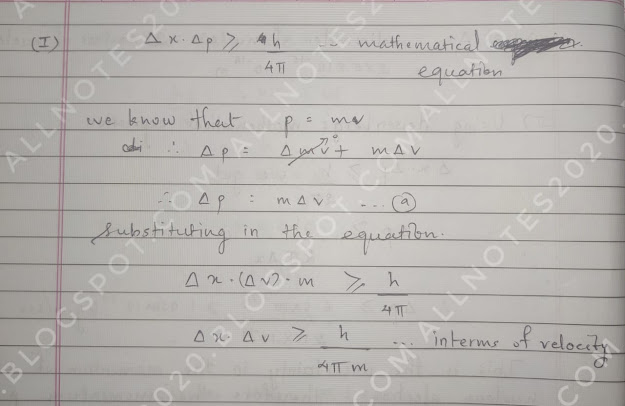 (I) Δx·Δp ⩾ h/4π ... mathematical equation
we know that p = mv
∴ Δp = Δmv⁰ + mΔv
∴ Δp = mΔv ... ⓐ
substituting in the equation.
Δx·(Δv)·m ⩾ h/4π
Δx·Δv ⩾ h/4πm ... interms of velocity
ALLNOTES2020.BLOGSPOT.COM